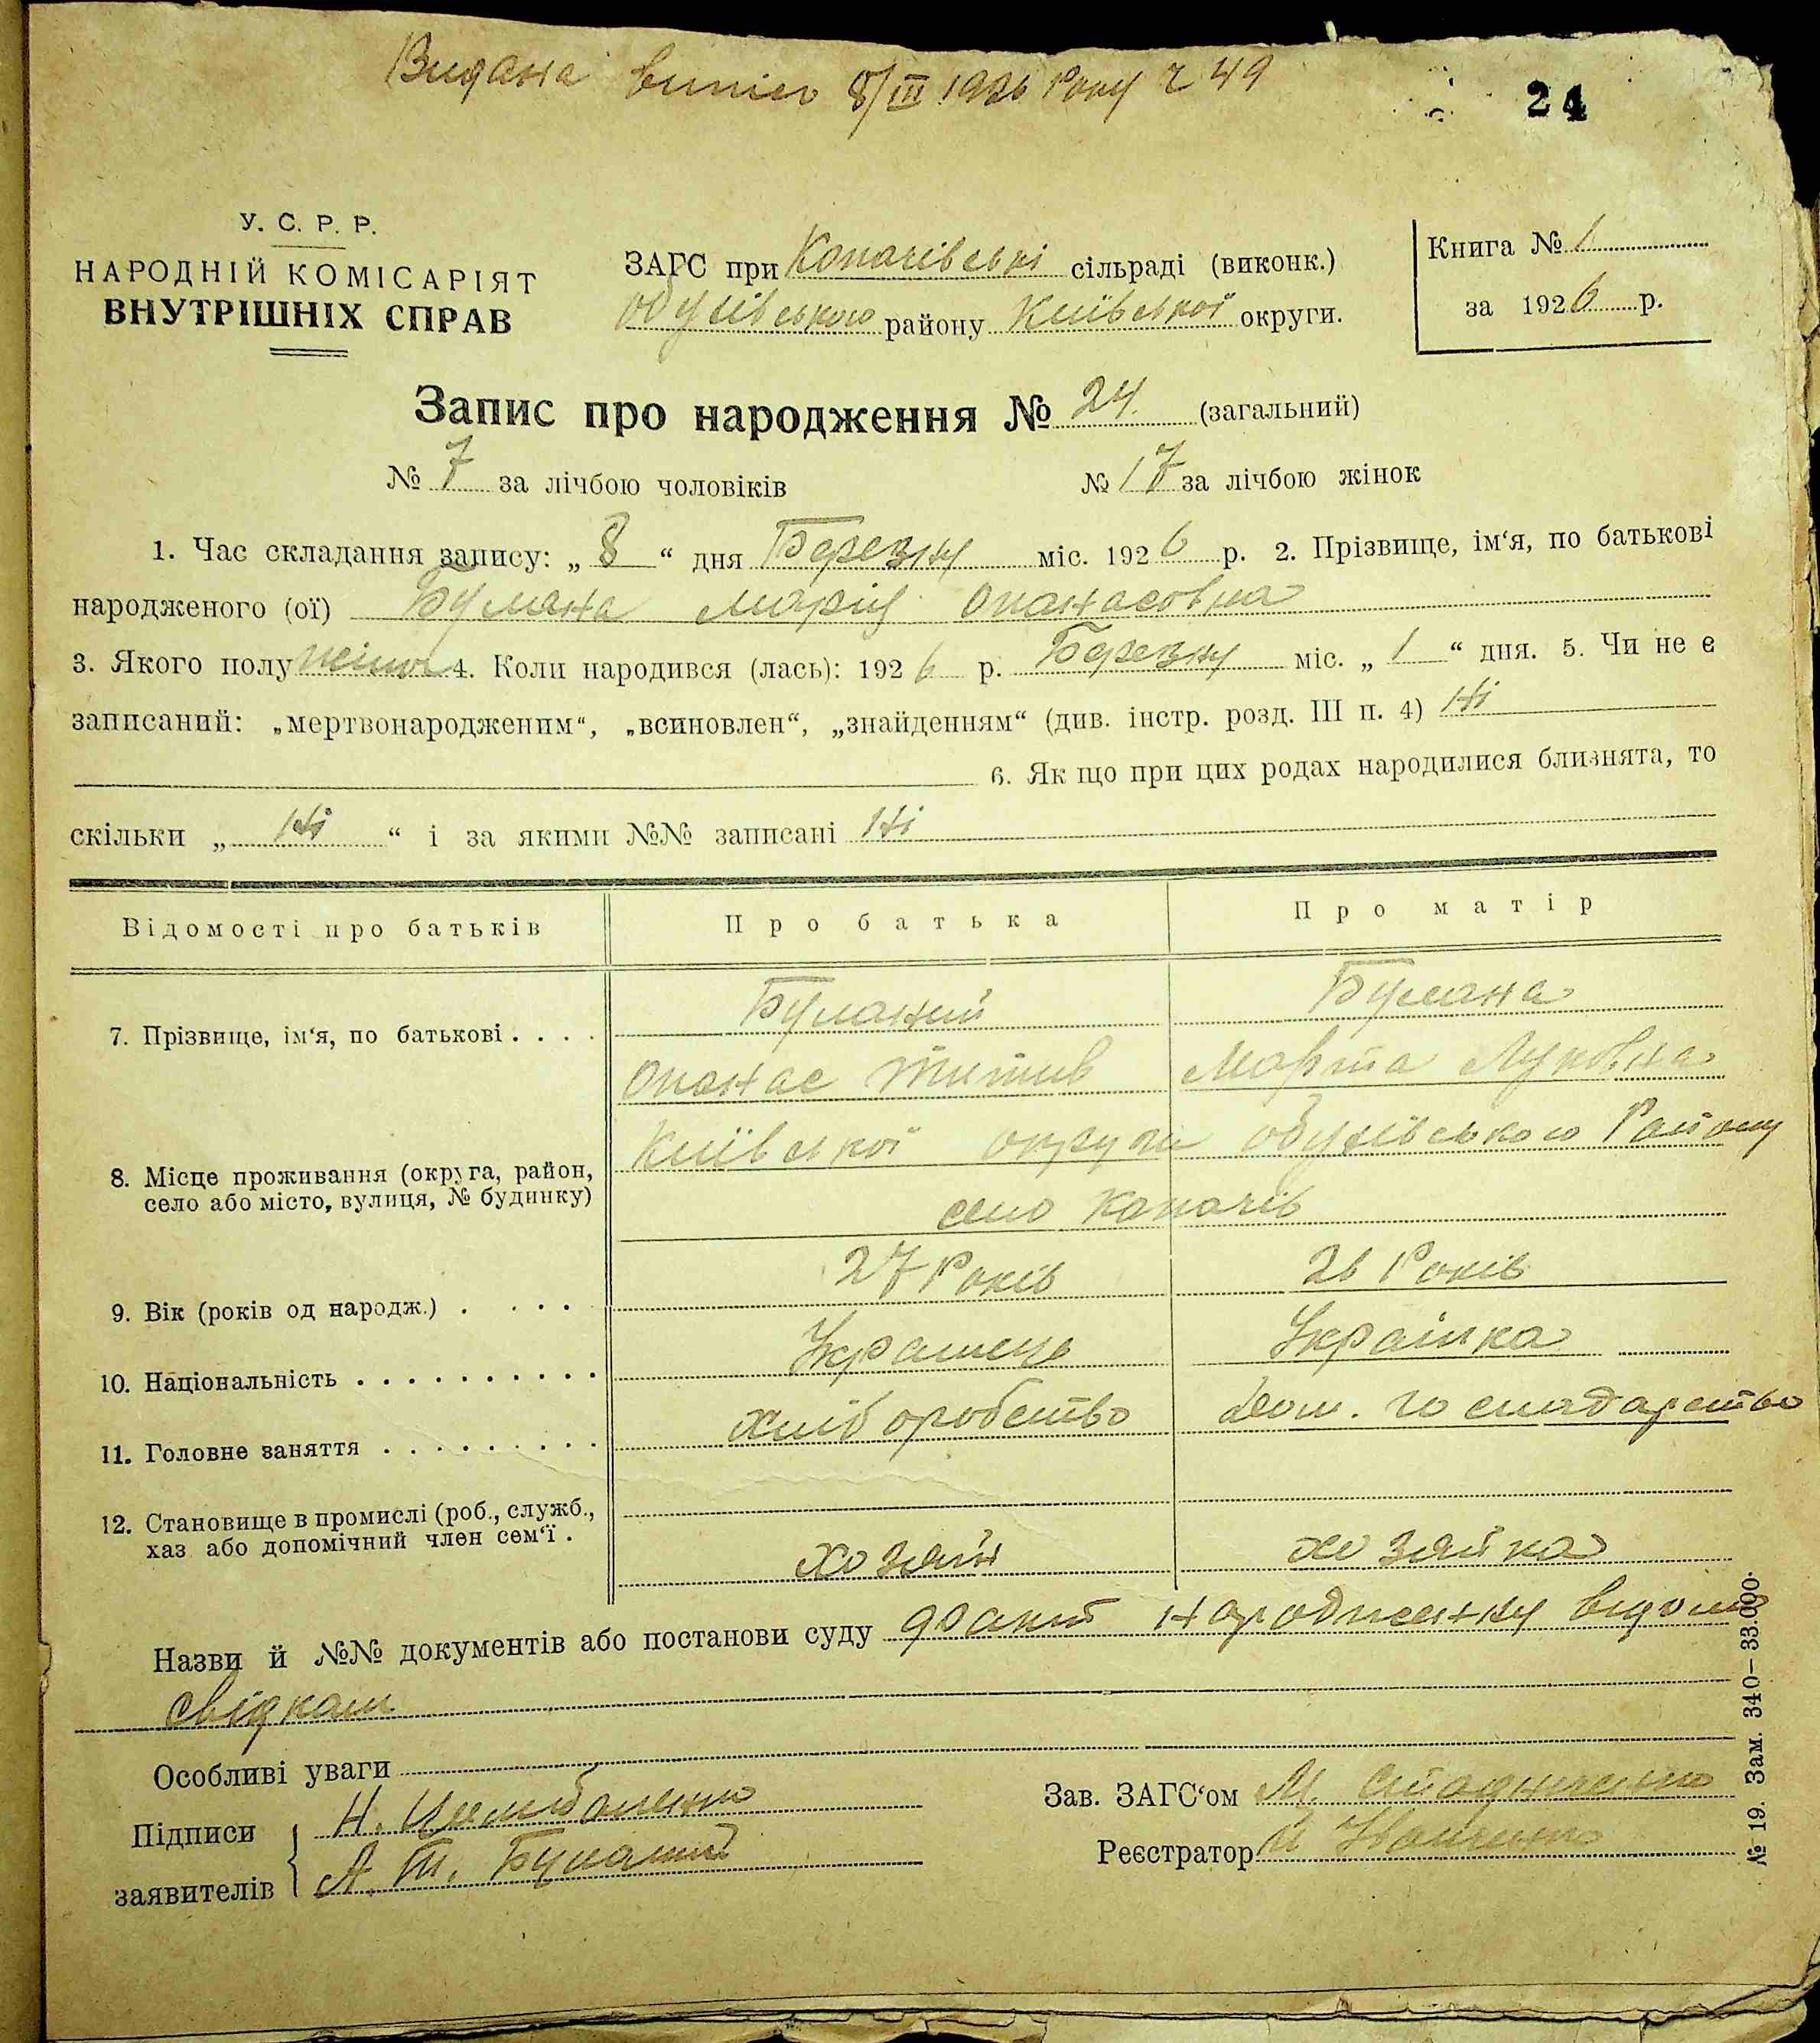 Видана випись 8/III 1926 Року № 49
24
У. С. Р. Р.
НАРОДНІЙ КОМІСАРІЯТ
ВНУТРІШНІХ СПРАВ
ЗАГС при Копачівські сільраді (виконк.)
Обухівського району Київської округи.
Книга № 1
за 1926 р.
Запис про народження № 24 (загальний)
№ 7 за лічбою чоловіків № 17 за лічбою жінок
1. Час складання запису: „ 8 “ дня Березня міс. 1926 р. 2. Прізвище, ім‘я, по батькові
народженого (ої) Булана Марія Опанасовна
3. Якого полу жіноч 4. Коли народився (лась): 1926 р. Березня міс. „ 1 “ дня. 5. Чи не є
записаний: „мертвонародженим“, „всиновлен“, „знайденням“ (див. інстр. розд. III п. 4) Ні
6. Як що при цих родах народилися близнята, то
скільки „ Ні “ і за якими №№ записані Ні
Відомості про батьків Про батька Про матір
7. Прізвище, ім‘я, по батькові . . . . Буланий Булана
Опанас Титив Марта Луковна
8. Місце проживання (округа, район, село або місто, вулиця, № будинку) Київської округи Обухівського Району
село Копачів
9. Вік (років од народж.) . . . . 27 Років 26 Років
10. Національність . . . . . . . . . . Украинець Українка
11. Головне заняття . . . . . . . . . . хліборобство Дом. господарство
12. Становище в промислі (роб., служб.,
хаз або допомічний член сем‘ї . хозяїн хозяйка
Назви й №№ документів або постанови суду факт народження відомо
свідкам
Особливі уваги
Підписи заявителів
Н.
А. Т. Буланий
Зав. ЗАГС‘ом М. Стадниченко
Реєстратор
№ 19. Зам. 340—33.000.